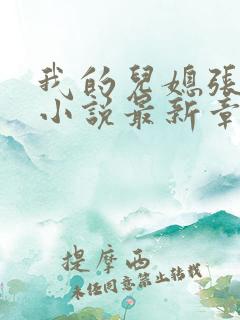 我的兒媳張
小說最新章
提摩西
未经同意禁止转载